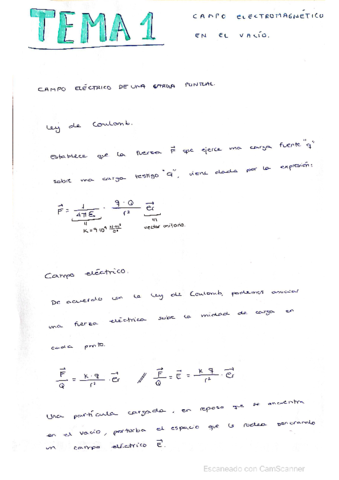 TEMA 1
CAMPO ELECTROMAGNÉTICO
EN EL VACÍO.
CAMPO ELÉCTRICO DE UNA CARGA PUNTUAL.
Ley de Coulomb.
Establece que la fuerza F⃗ que ejerce una carga fuente "q"
sobre una carga testigo "Q", viene dada por la expresión:
F⃗ = 1/(4πE₀) · q·Q/r² · e⃗r
K=9·10⁹ N·m²/C² vector unitario.
Campo eléctrico.
De acuerdo con la ley de Coulomb, podemos asociar
una fuerza eléctrica sobre la unidad de carga en
cada punto.
F⃗/Q = k·q/r² · e⃗r // F⃗/Q = E⃗ = k·q/r² · e⃗r
Una partícula cargada, en reposo que se encuentra
en el vacío, perturba el espacio que le rodea generando
un campo eléctrico E⃗.
Escaneado con CamScanner